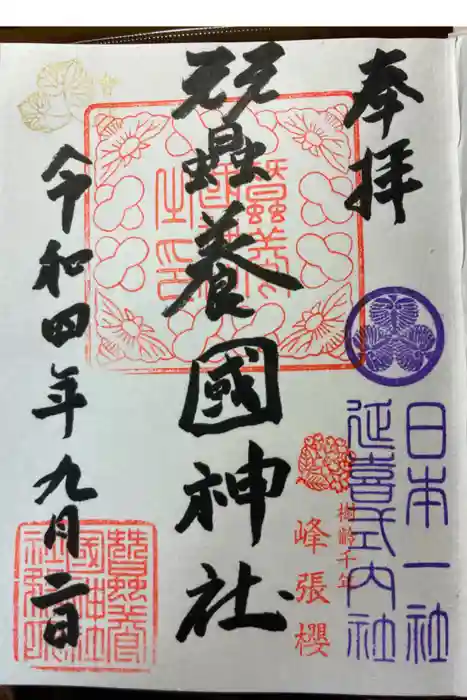 奉拝
日本一社
延喜式内社
樹齢千年
峰張櫻
蠶養國神社
令和四年九月二日